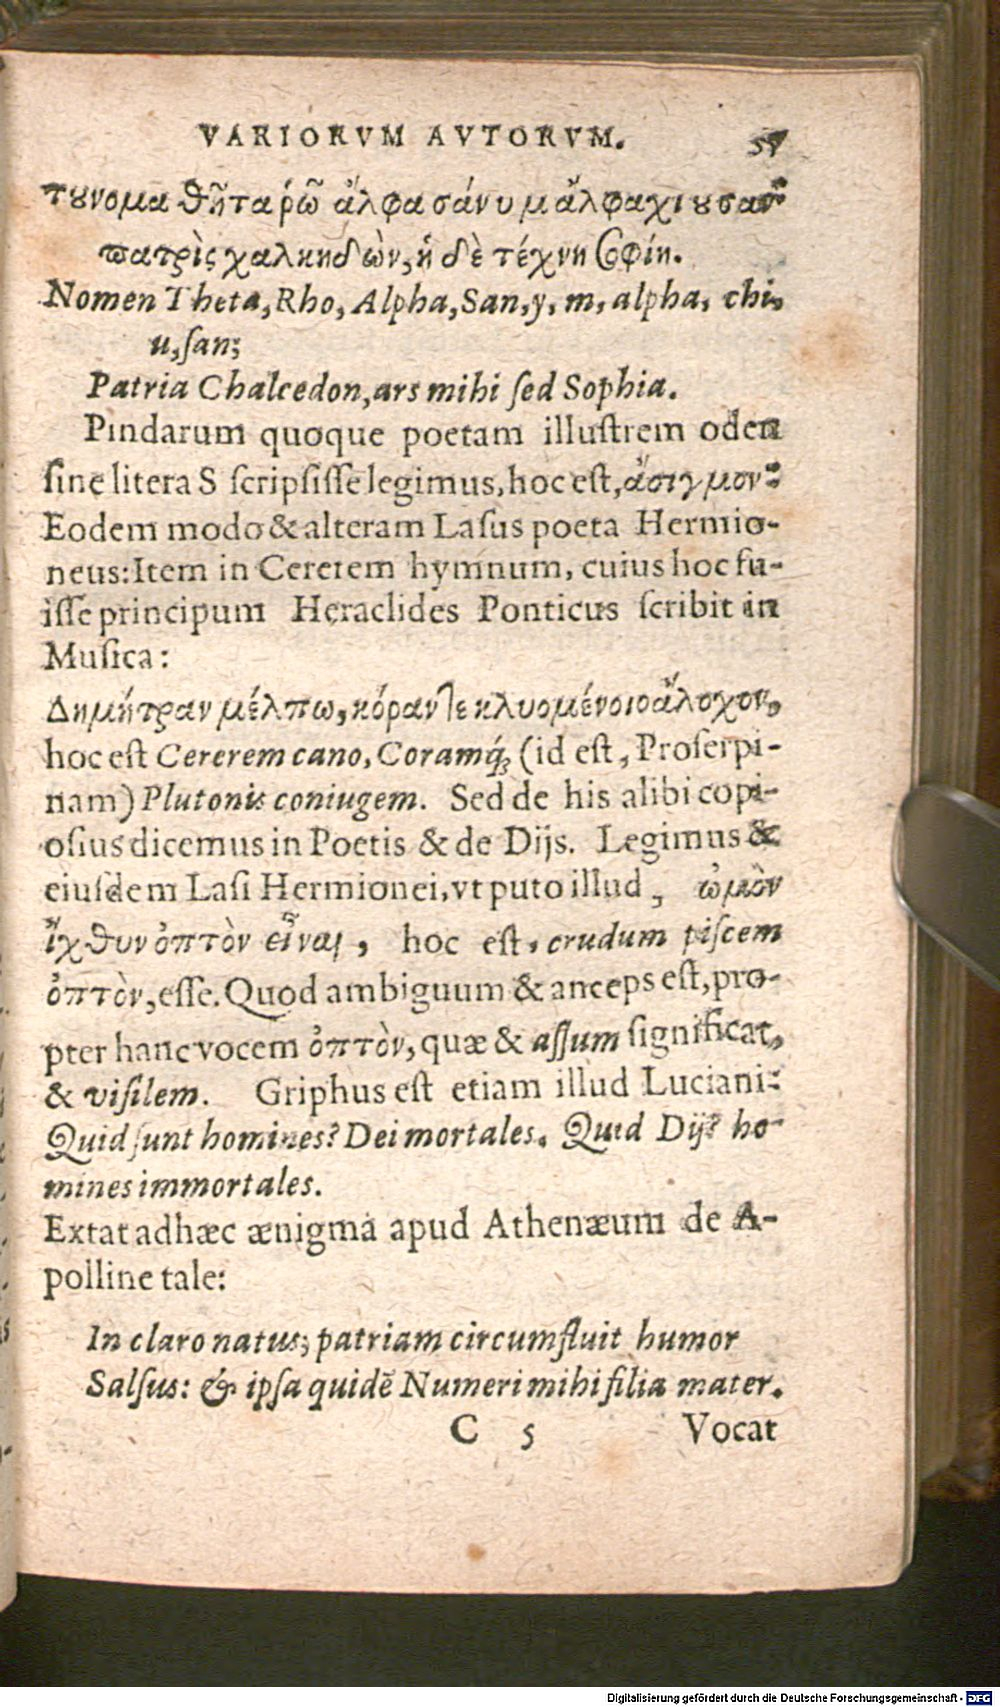 VARIORVM AVTORVM.
τȣνομα θῆτα ῥῶ ἄλφα σάν υ μ ἄλφα χι ȣ σαν·
πατρὶς χαλκηδὼν, ἡ δὲ τέχνη σοφίη.
Nomen Theta, Rho, Alpha, San, y, m, alpha, chi,
u, ſan;
Patria Chalcedon, ars mihi ſed Sophia.
Pindarum quoque poetam illuſtrem oden
ſine litera S ſcripſiſſe legimus, hoc eſt, ἄσιγμον:
Eodem modo & alteram Laſus poeta Hermio-
neus: Item in Cererem hymnum, cuius hoc fu-
iſſe principum Heraclides Ponticus ſcribit in
Muſica:
Δημήτραν μέλπω, κόραν τε κλυομένοιο ἄλοχον,
hoc eſt Cererem cano, Coramq́; (id eſt, Proſerpi-
nam) Plutonis coniugem. Sed de his alibi copi-
oſius dicemus in Poetis & de Dijs. Legimus &
eiuſdem Laſi Hermionei, vt puto illud, ὠμὸν
ἴχθυν ὀπτὸν εἶναι, hoc eſt, crudum piſcem
ὀπτὸν, eſſe. Quod ambiguum & anceps eſt, pro-
pter hanc vocem ὀπτὸν, quæ & aſſum ſignificat,
& viſilem. Griphus eſt etiam illud Luciani:
Quid ſunt homines? Dei mortales. Quid Dij? ho-
mines immortales.
Extat adhæc ænigma apud Athenæum de A-
polline tale:
In claro natus; patriam circumfluit humor
Salſus: & ipſa quidē Numeri mihi filia mater.
C 5 Vocat
Digitalisierung gefördert durch die Deutsche Forschungsgemeinschaft - DFG